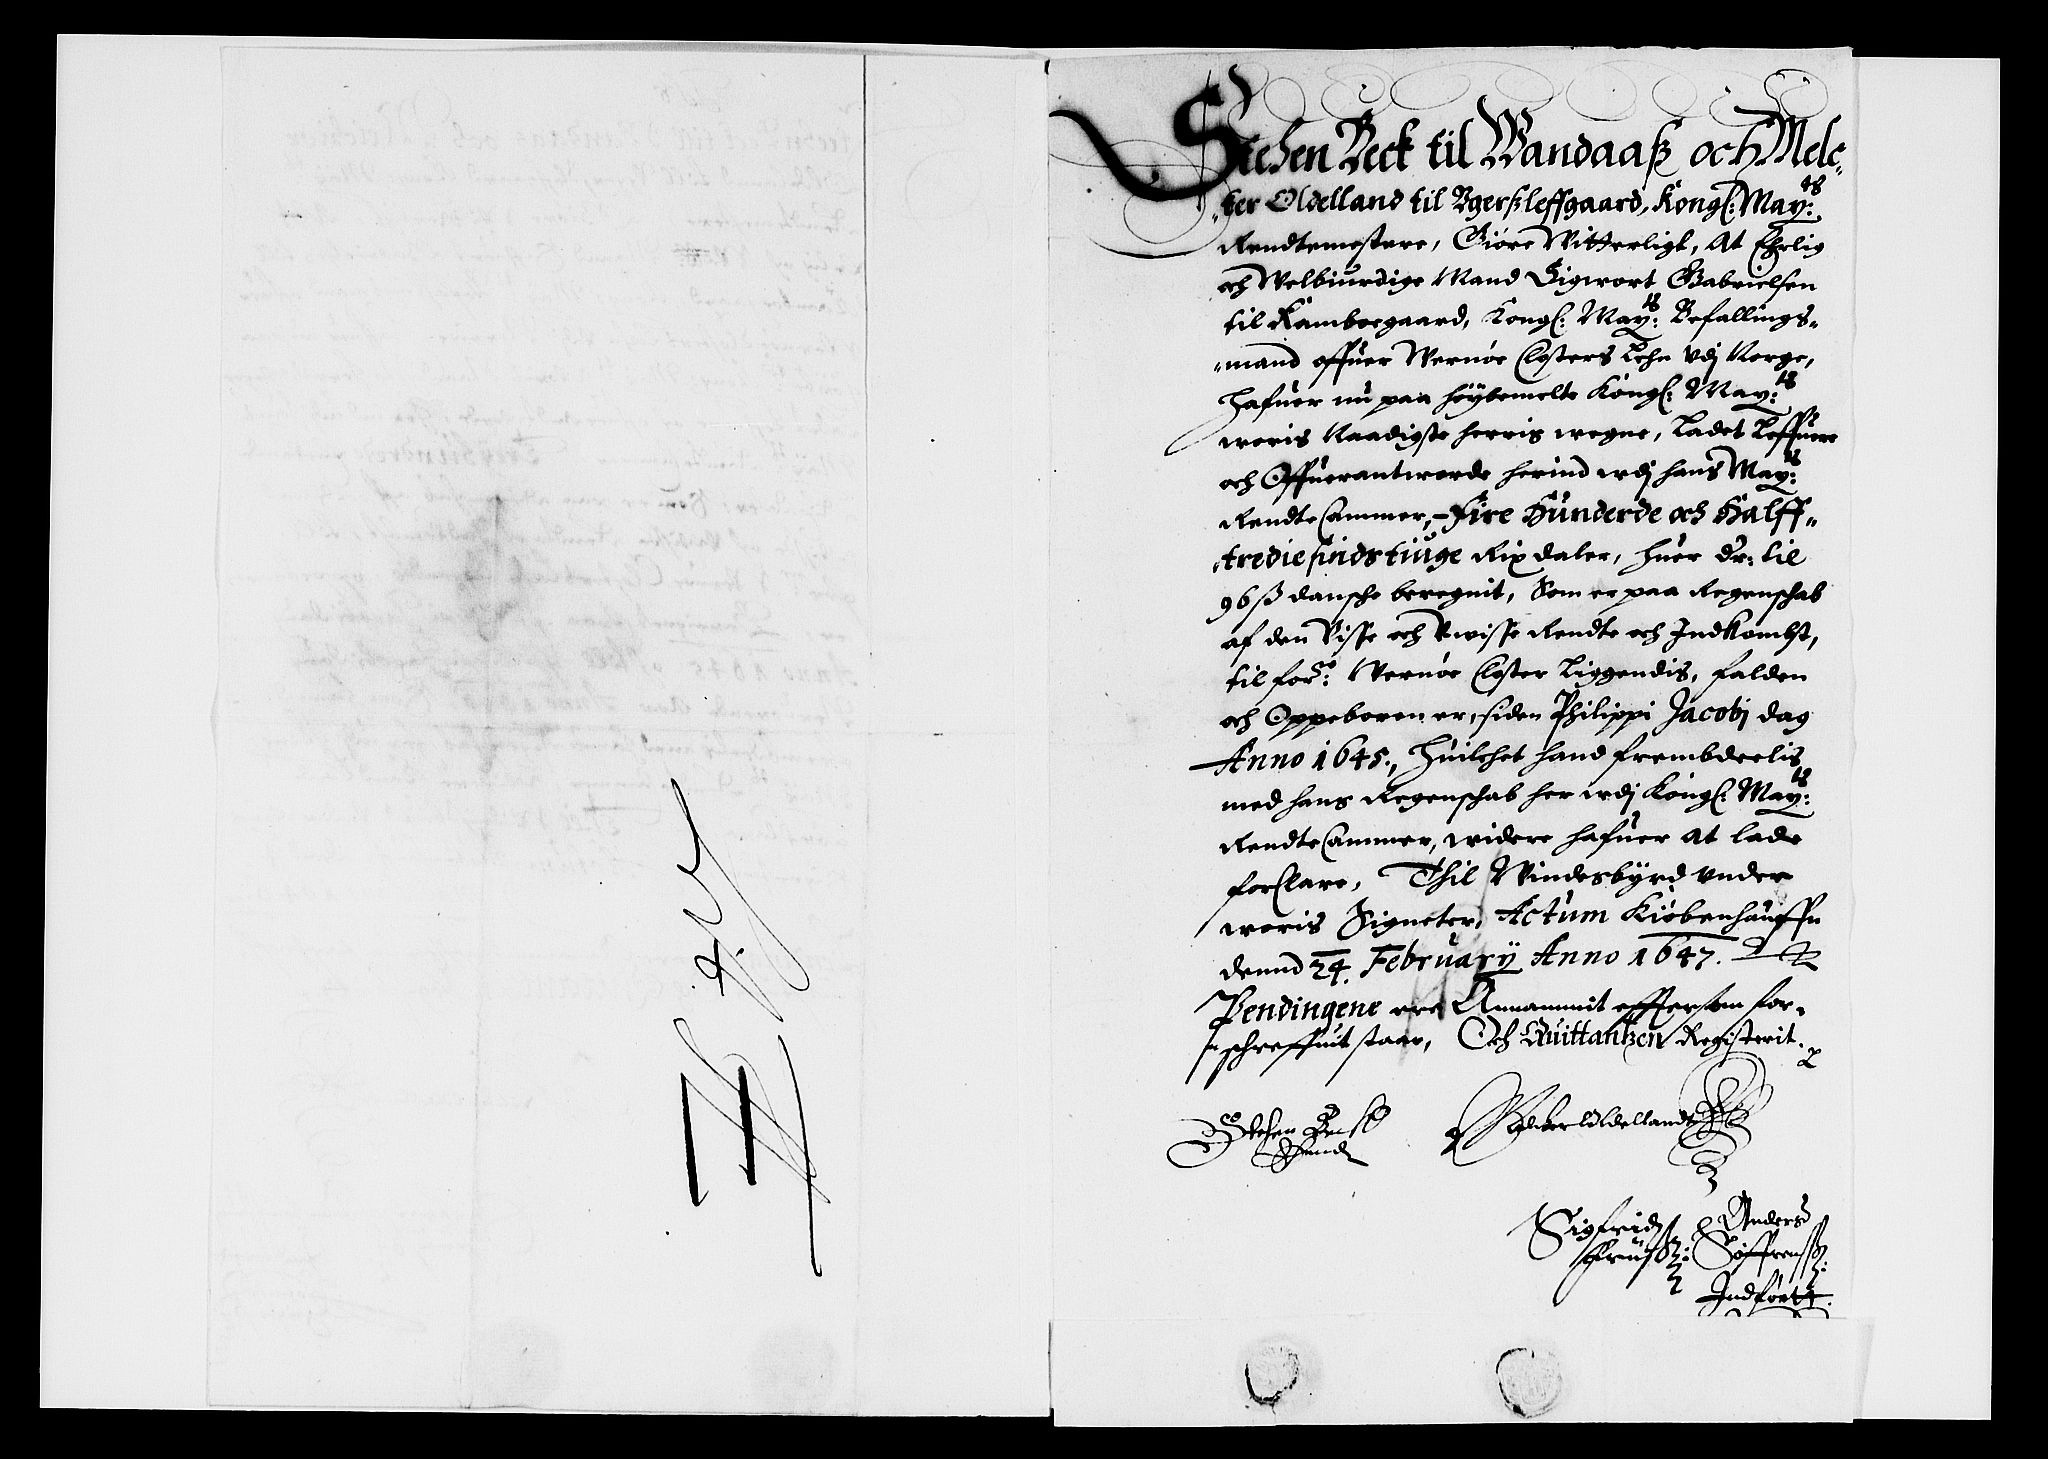 Stehen Beck til Wandaaß och Melc-
-ker Oldelland til Ugerßleffgaard, Kongl: May:ts
Rendtemestere, Giöre Witterligt, At Ehrlig
och Welbiurdige Mand Sigwort Gabrielsen
til Kamboegaard, Kongl: May:ts Befallings-
-mand offuer Wernøe Closters Lehn Udj Norge,
Hafuer nu paa høybemelte Kongl: May:ts
woris Naadigste herris wegne, Ladet Leffuere
och Offuerantworde herind wdj hans May:ts
RendteCammer, Fire Hunderde och Halff-
-trediesindstiuge Rixdaler, huer dr: til
96 ß dansche beregnit, Som er paa Regenschab
af den Visse och Uwisse Rendte och Indkombst,
til for:ne Wernøe Closter Liggendis, falden
och Oppeboren er, siden Philippi Jacobj dag
Anno 1645, Huilchet hand frembdeelis
med hans Regenschab her wdj Kongl: May:ts
RendteCammer, widere hafuer at lade
forClare, Thil Windesbyrd under
woris Signeter, Actum Kiøbenhauffn
dennd 24. February Anno 1647.
Pendingene ere Annammit effter som for-
-schreffuit staar, Och Quittantzen Registerit.
Stehen Beck
Melcker Oldellandt
Sigfrid
Anders
Søffrenß:
Indført.